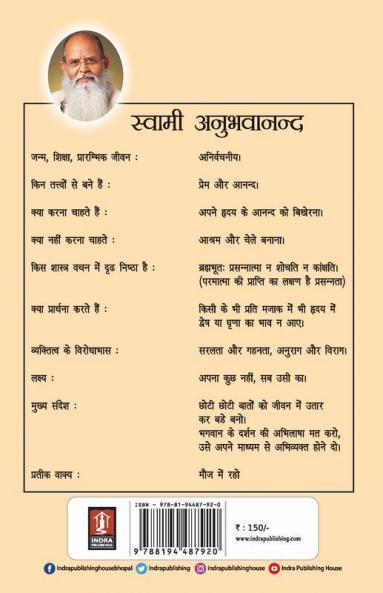 स्वामी अनुभवानन्द
जन्म, शिक्षा, प्रारम्भिक जीवन : अनिर्वचनीय।
किन तत्त्वों से बने हैं : प्रेम और आनन्द।
क्या करना चाहते हैं : अपने हृदय के आनन्द को बिखेरना।
क्या नहीं करना चाहते : आश्रम और चेले बनाना।
किस शास्त्र वचन में दृढ निष्ठा है : ब्रह्मभूतः प्रसन्नात्मा न शोचति न कांक्षति।
(परमात्मा की प्राप्ति का लक्षण है प्रसन्नता)
क्या प्रार्थना करते हैं : किसी के भी प्रति मजाक में भी हृदय में
द्वेष या घृणा का भाव न आए।
व्यक्तित्व के विरोधाभास : सरलता और गहनता, अनुराग और विराग।
लक्ष्य : अपना कुछ नहीं, सब उसी का।
मुख्य संदेश : छोटी छोटी बातों को जीवन में उतार
कर बडे बनो।
भगवान के दर्शन की अभिलाषा मत करो,
उसे अपने माध्यम से अभिव्यक्त होने दो।
प्रतीक वाक्य : मौज में रहो
ISBN - 978-81-94487-92-0
₹ : 150/-
www.indrapublishing.com
INDRA
PUBLISHING HOUSE
9 788194 487920
indrapublishinghousebhopal indrapublishing indrapublishinghouse Indra Publishing House